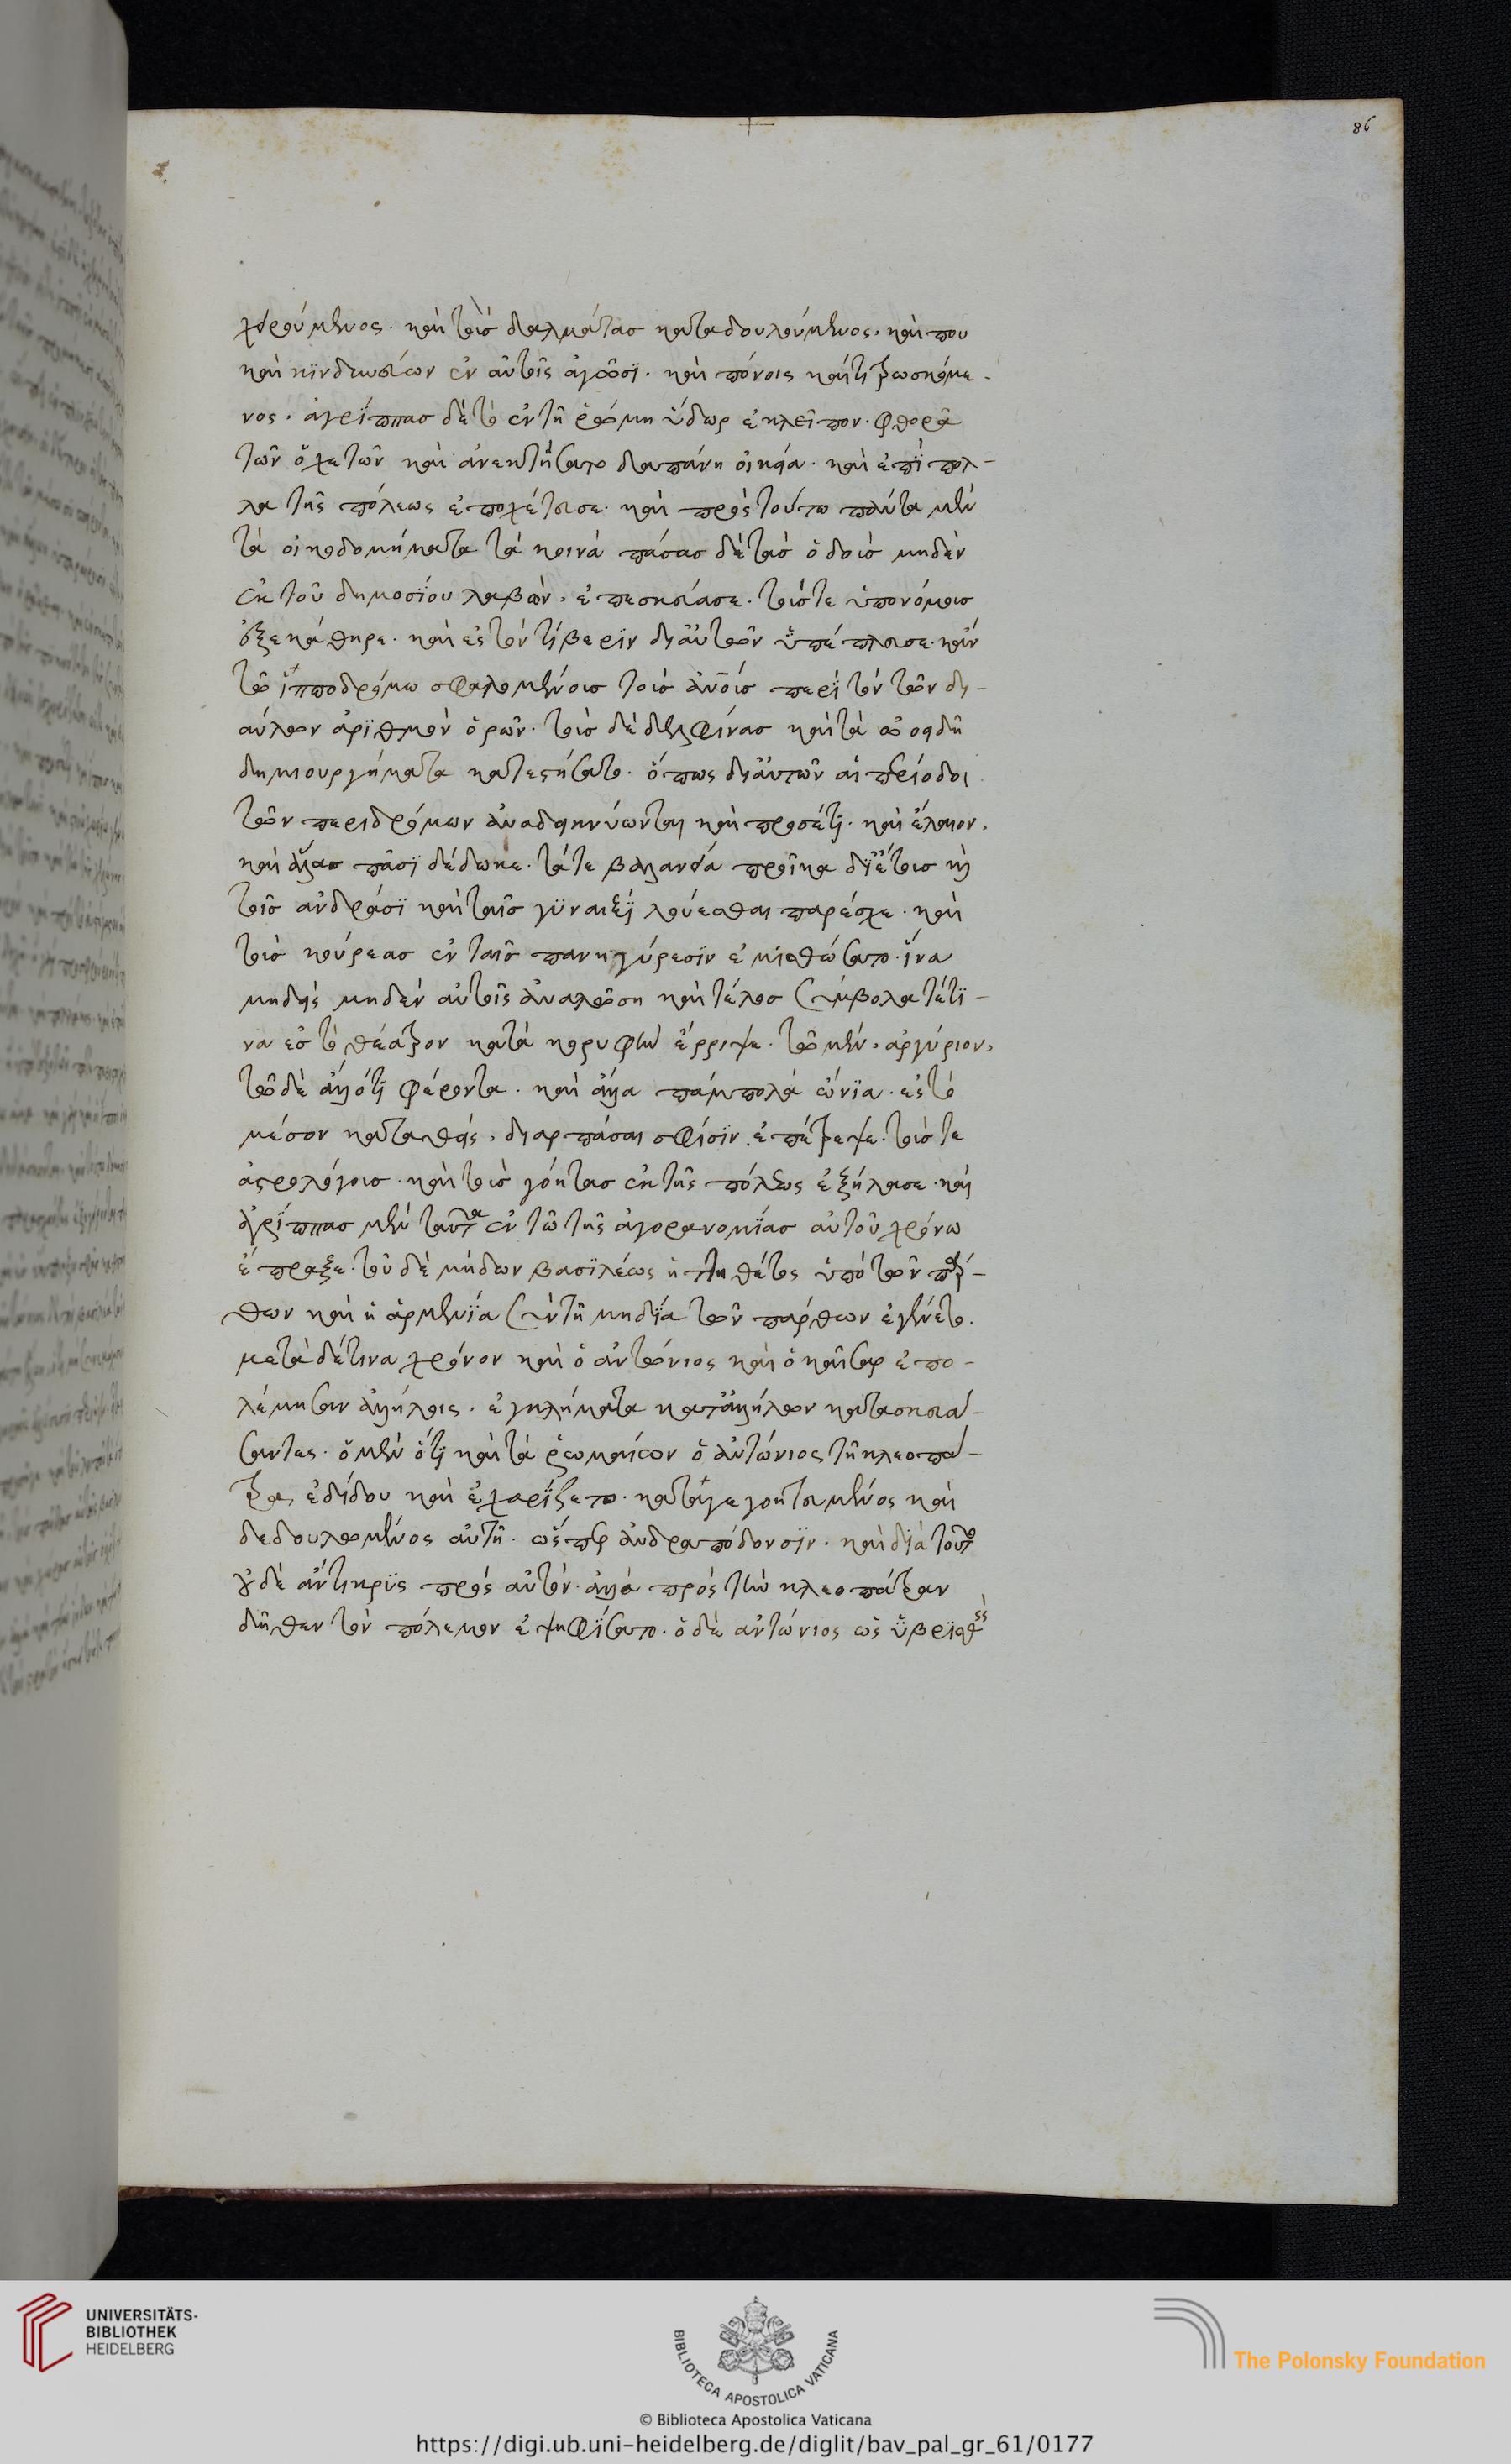 86
χειρούμενος. καὶ τοὺσ δαλμάτασ καταδουλούμενος. καί που
καὶ κϊνδυνεύων ἐν αὐτοῖς ἀγῶσϊ. καὶ πόνοις καὶ τιτρωσκόμε-
νος. ἀγρίππασ δὲ τὸ ἐν τῆ ῥώμη ὕδωρ ἐκλεῖπον. φθορᾶ
τῶν ὀχετῶν καὶ ἀνεκτήσατο δαπάνη οἰκεία. καὶ ἐπῒ πολ-
λα τῆς πόλεως ἐποχέτευσε. καὶ πρὸς τούτω πάντα μὲν
τὰ οἰκοδομήματα τὰ κοινὰ πάσασ δὲ τὰσ ὁδοὺσ μηδὲν
ἐκ τοῦ δημοσίου λαβὼν, ἐπεσκεύασε. τούστε ὑπονόμουσ
ἐξεκάθηρε. καὶ ἐς τὸν τίβερϊν δι αὐτῶν ὑπέπλευσε. κἀν
τῶ ἱπποδρόμω σφαλομένουσ τοὺσ ἀνο̅υ̅σ περῒ τὸν τῶν δι-
αύλων ἀρϊθμὸν ὁρῶν. τοὺσ δὲ δελφῖνασ καὶ τὰ ὠοειδῆ
δημιουργήματα κατεστήσατο. ὅπως δι αὐτῶν αἱ περίοδοι
τῶν περιδρόμων ἀναδεικνύωνται καὶ προσέτι. καὶ ἔλαιον.
καὶ ἅλασ πᾶσϊ δέδωκε. τάτε βαλανεῖα προῖκα δϊ ἔτουσ καὶ
τοῖσ ἀνδράσϊ καὶ ταῖσ γϋναιξῒ λούεσθαι παρέσχε. καὶ
τοὺσ κούρεασ ἐν ταῖσ πανηγύρεσϊν ἐμισθώσατο. ἵνα
μηδεὶς μηδὲν αὐτοῖς ἀναλώση καὶ τέλοσ σύμβολα τέτϊ-
να ἐσ τὸ θέατρον κατὰ κορυφὴν ἔρριψε. τῶ μὲν, ἀργύριον,
τῶ δὲ ἄλλό τι φέροντα. καὶ ἄλλα πάμπολα ὤνϊα. ἐς τὸ
μέσον καταθεὶς, διαρπάσαι σφίσϊν ἐπέτρεψε. τούστε
ἀστρολόγουσ. καὶ τοὺσ γόητασ ἐκ τῆς πόλεως ἐξήλασε. καὶ
ἀγρίππασ μὲν ταῦτα ἐν τῶ τῆς ἀγορανομίασ αὐτοῦ χρόνω
ἔπραξε. τοῦ δὲ μήδων βασϊλέως ἡττηθέντος ὑπὸ τῶν πάρ-
θων καὶ ἡ ἀρμενϊα σὺν τῆ μηδΐα τῶν πάρθων ἐγένετο.
μετὰ δέ τινα χρόνον καὶ ὁ ἀντώνιος καὶ ὁ καῖσαρ ἐπο-
λέμησαν ἀλλήλοις. ἐγκλήματα κατ ἀλλήλων κατασκευά-
σαντες. ὁ μὲν ὅτι καὶ τὰ ῥωμαίων ὁ ἀντώνιος τῆ κλεοπά-
τρα, ἐδίδου καὶ ἐχαρίζετο. καταγεγοητευμένος καὶ
δεδουλωμένος αὐτῆ. ὥσπερ ἀνδραπόδονσϊν. καὶ διὰ τοῦτο
οὐδὲ ἄντικρϋς πρὸς αὐτὸν. ἀλλὰ πρὸς τὴν κλεοπάτραν
δῆθεν τὸν πόλεμον ἐψηφίσατο. ὁ δὲ ἀντώνιος ὡς ὕβρϊσθεὶς
UNIVERSITÄTS-
BIBLIOTHEK
HEIDELBERG
BIBLIOTECA APOSTOLICA VATICANA
© Biblioteca Apostolica Vaticana
The Polonsky Foundation
https://digi.ub.uni-heidelberg.de/diglit/bav_pal_gr_61/0177